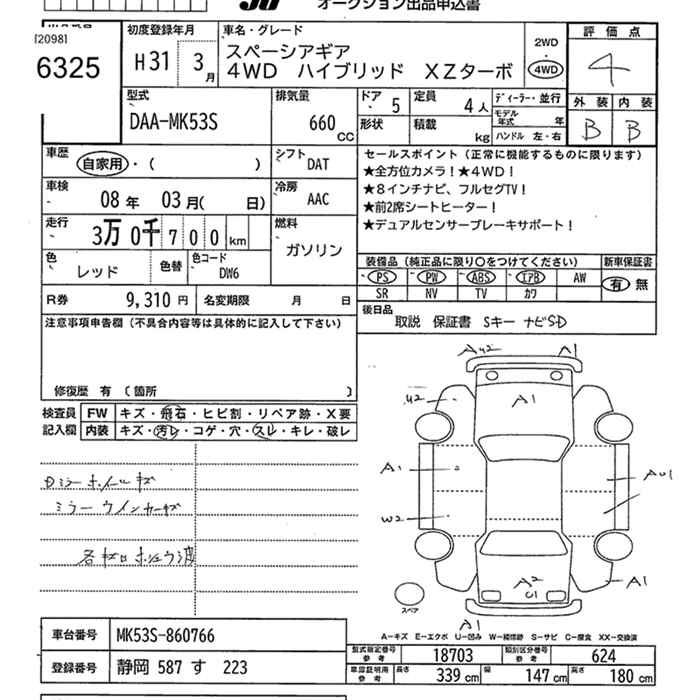 オークション出品申込書
[2098]
6325
初度登録年月
H31 3月
車名・グレード
スペーシアギア
4WD ハイブリッド XZターボ
2WD
・
4WD
評価点
4
外装 内装
B B
型式
DAA-MK53S
排気量
660 CC
ドア 5
定員 4人
ディーラー・並行
モデル年式 年
形状
積載 kg
ハンドル 左・右
車歴
自家用・( )
シフト
DAT
車検
08年 03月( 日)
冷房
AAC
走行
3万0千700km
燃料
ガソリン
色
レッド
色替
色コード
DW6
R券 9,310円
名変期限 月 日
セールスポイント(正常に機能するものに限ります)
★全方位カメラ!★4WD!
★8インチナビ、フルセグTV!
★前2席シートヒーター!
★デュアルセンサーブレーキサポート!
装備品(純正品に限り○をつけてください)
新車保証書
PS PW ABS エアB AW
有 無
SR NV TV カワ
後日品
取説 保証書 Sキー ナビSD
注意事項申告欄(不具合内容等は具体的に記入して下さい)
修復歴 有 〔箇所 〕
検査員
記入欄
FW キズ・飛石・ヒビ割・リペア跡・X要
内装 キズ・汚レ・コゲ・穴・スレ・キレ・破レ
ミラーウインカーキズ
A1
A1
U2
A1
W2
A2
U1
A1
A1
スペア
A-キズ E-エクボ U-凹み W-補修跡 S-サビ C-腐食 XX-交換済
車台番号 MK53S-860766
登録番号 静岡 587 す 223
型式指定番号
参考
18703
類別区分番号
参考
624
車庫証明用
参考
長さ 339 cm
幅 147 cm
高さ 180 cm